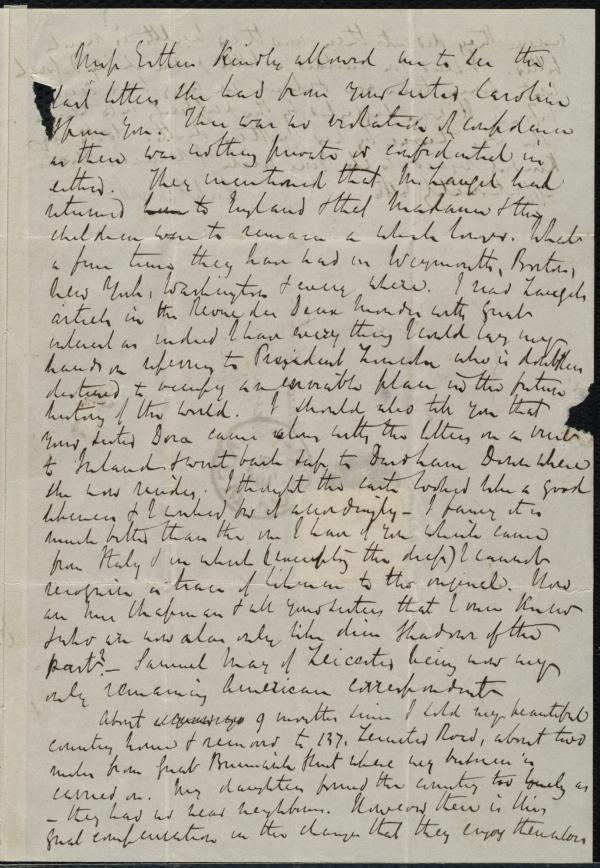 Miss Estlin kindly allowed me to see the
last letters she had from your sister Caroline
& from you. There was no violation of confidence
as there was nothing private or confidential in
either. They mentioned that Mr Laugel had
returned to England & that Madame & the
children were to remain a while longer. What
a fine time they have had in Weymouth, Boston,
New York, Washington & every where. I read Laugels
article in the Revue des Deux Mondes with great
interest as indeed I have every thing I could lay my
hands on referring to President Lincoln who is doubtless
destined to occupy an enviable place in the future
history of the world. I should also tell you that
your sister Dora came along with the letters on a visit
to Ireland & went back safe to Durdham Down where
she now resides. I thought the carte looked like a good
likeness & I wished for it accordingly – I fancy it is
much better than the one I have of you which came
from Italy & in which (excepting the dress) I cannot
recognise a trace of likeness to the original. How
are Mrs Chapman & all your sisters that I once knew
& who are now alas only like dim shadows of the
past? – Samuel May of Leicester being now my
only remaining American correspondent
About 9 months since I sold my beautiful
country home & removed to 137. Leinster Road, about two
miles from Great Brunswick Street where my business is
carried on. My daughters found the country too lonely as
– they had no near neighbours. However there is this
great compensation in the change that they enjoy themselves